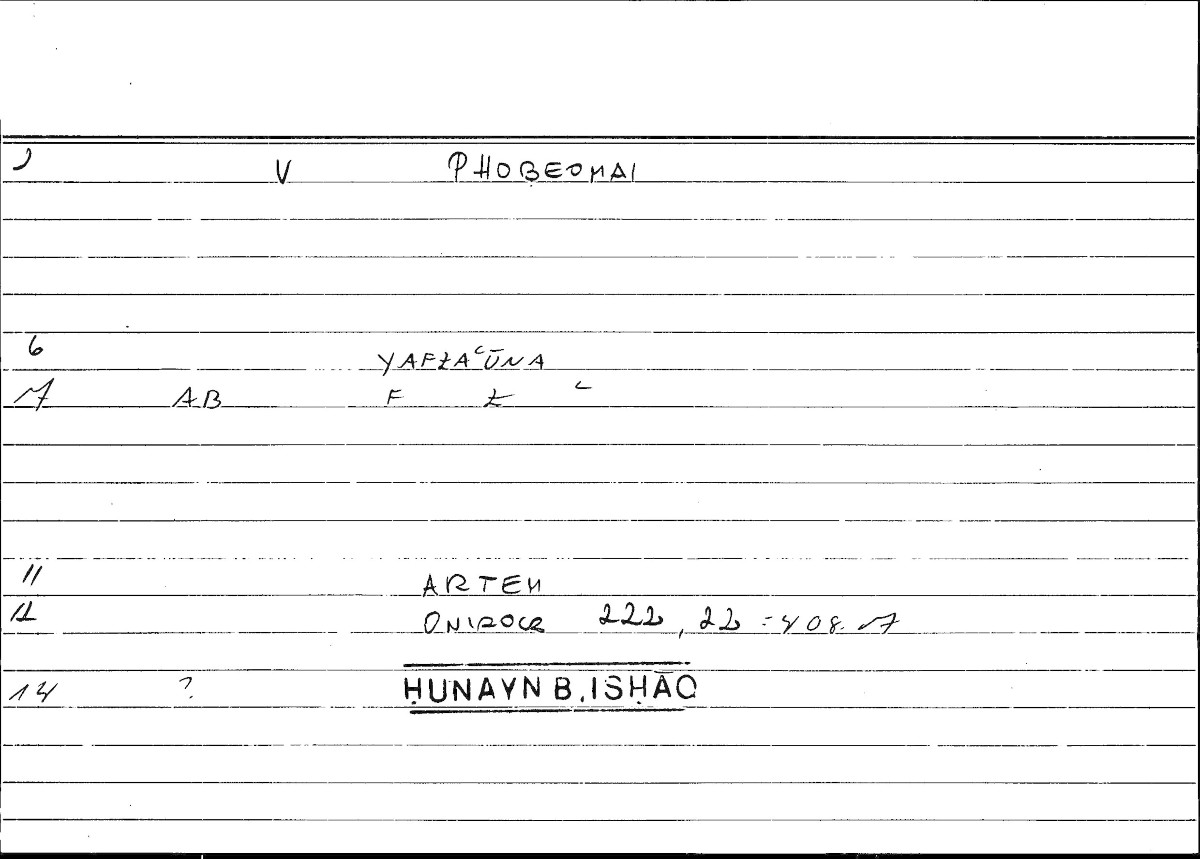 V PHOBEOMAI
6 YAFZAʿŪNA
7 AB F Z ʿ
11 ARTEM
12 ONIROCR 222, 22 = 408.7
14 ? ḤUNAYN B. ISḤĀQ